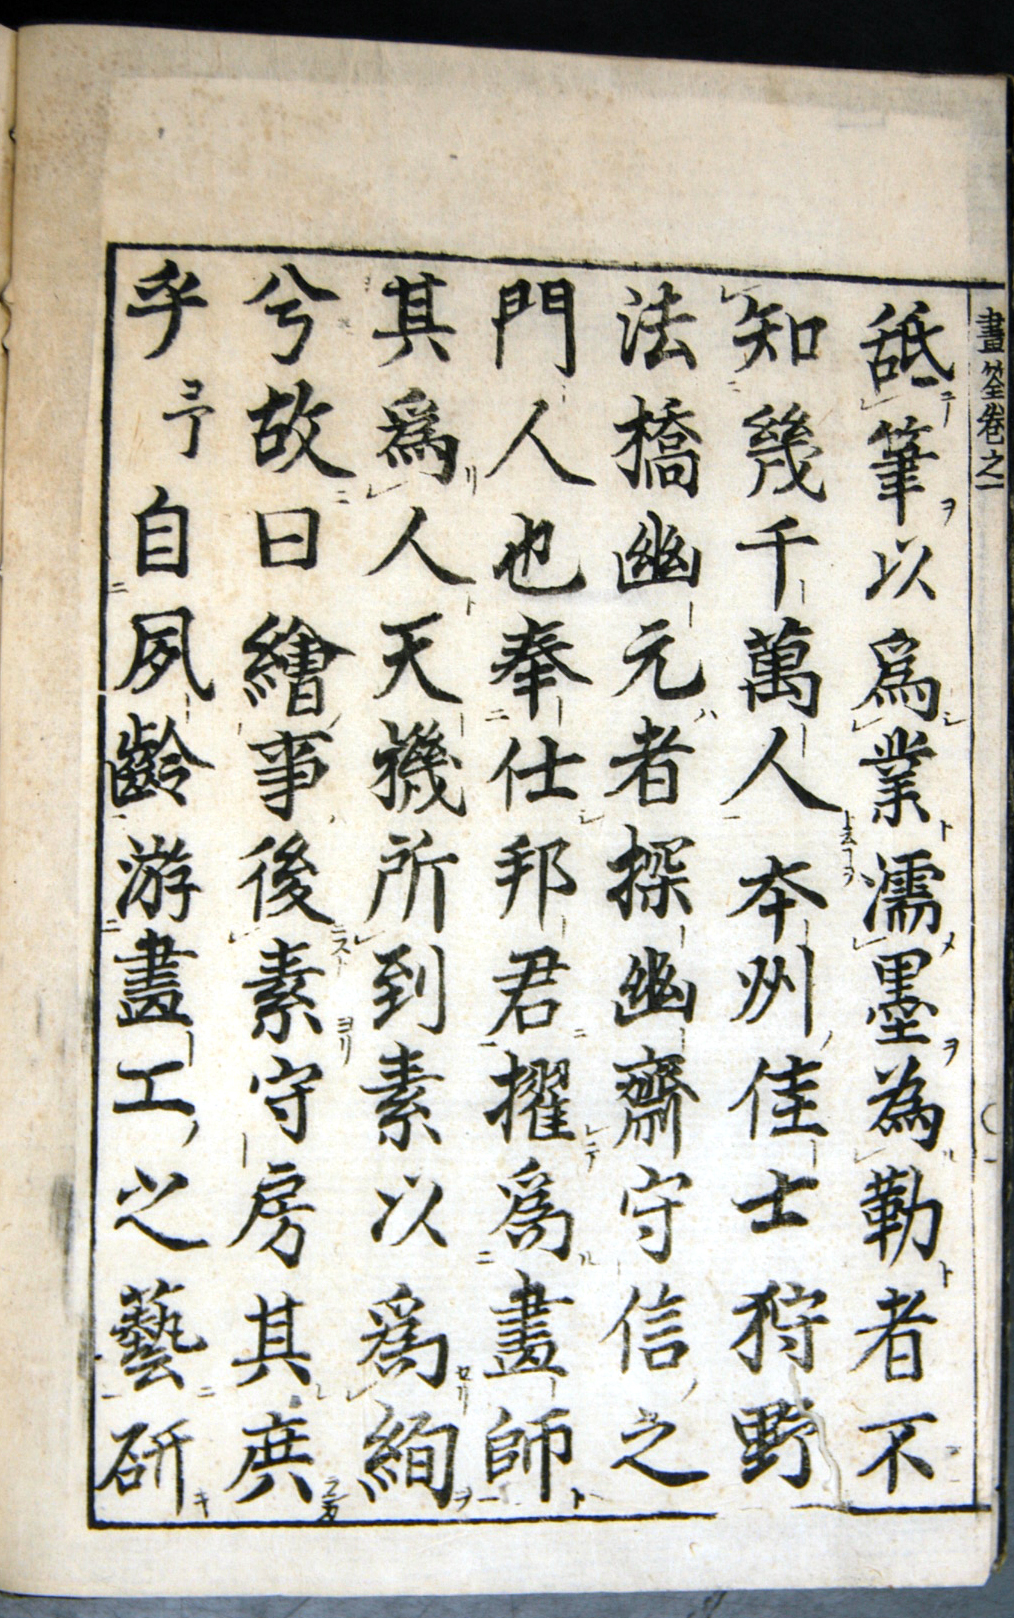 畫筌卷之一
舐筆以爲業濡墨為勒者不
知幾千萬人本州佳士狩野
法橋幽元者探幽齋守信之
門人也奉仕邦君擢爲畫師
其爲人天機所到素以爲絢
兮故曰繪事後素守房其庶
乎予自夙齡游畫工之藝研